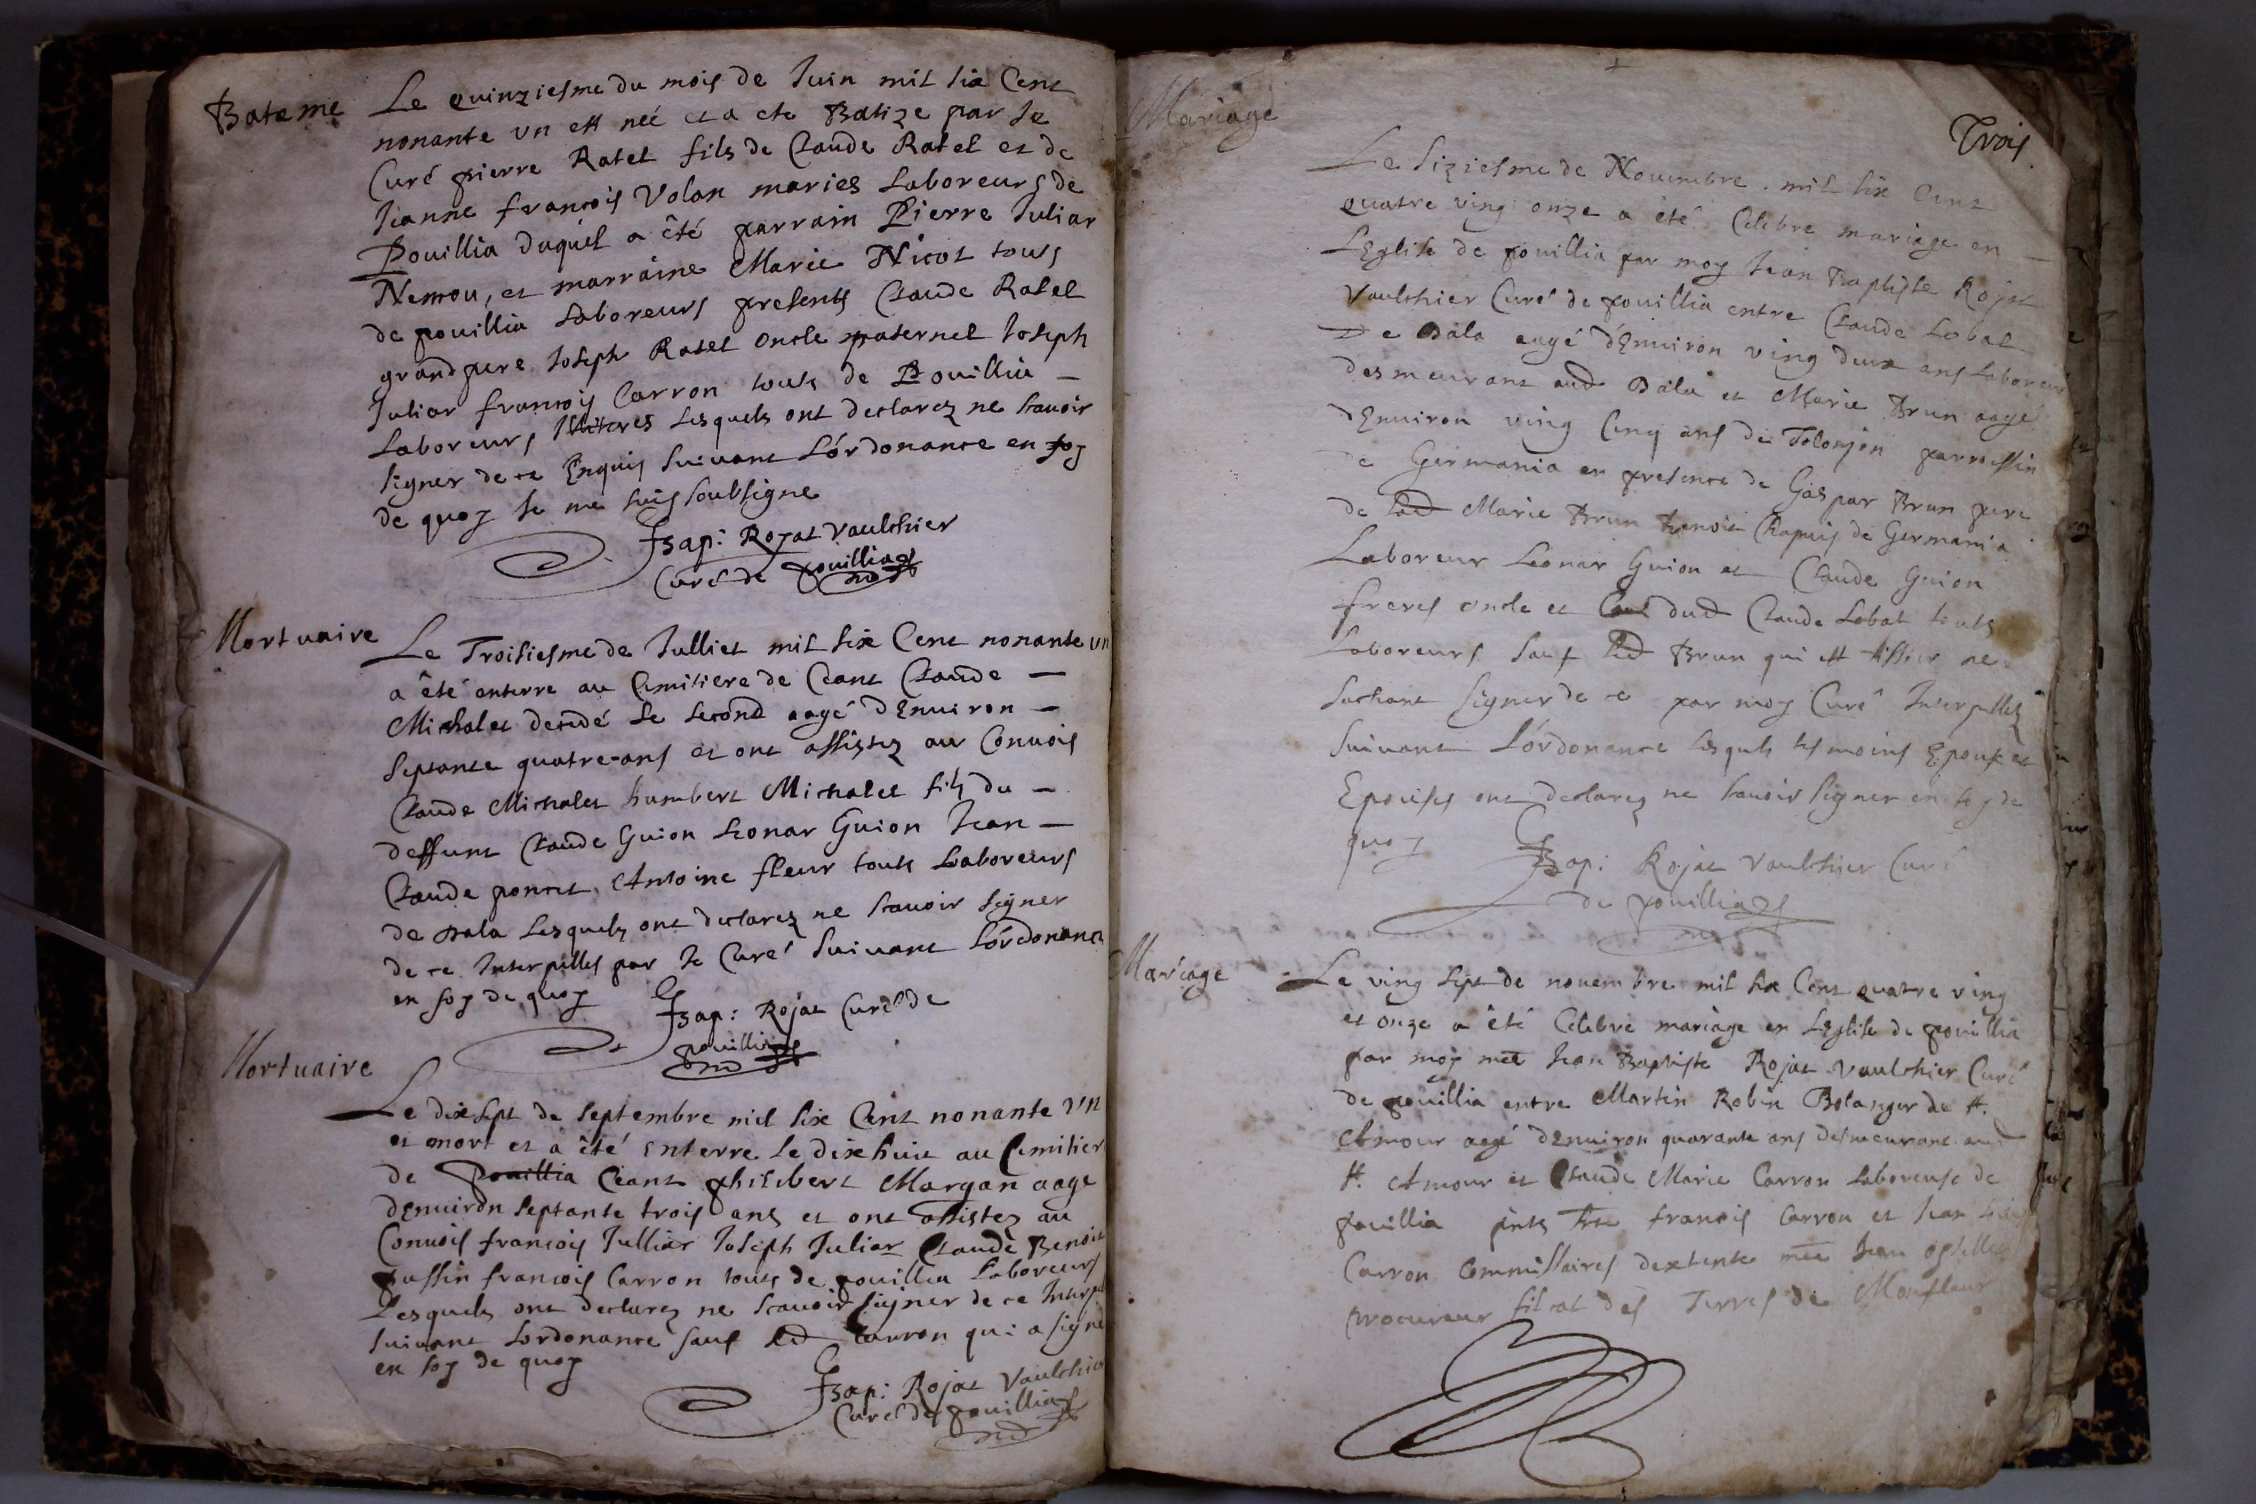 Bateme
Le quinziesme du mois de Juin mil six Cent
nonante un est neé et a ete Batize par le
Curé pierre Ratel fils de Claude Ratel et de
Jeanne francois Volan maries Laboreurs de
Pouillia duquel a été parrain Pierre Juliar
Nemou, et marraine Marie Nicot touts
de pouillia Laboreurs presents Claude Ratel
grandpere Joseph Ratel oncle paternel Joseph
Juliar francois Carron touts de Pouillia
Laboreurs lesquels ont declarez ne scauoir
signer de ce Enquis suiuant L'órdonance en foy
de quoy Je me suis soubsigne
JBap: Rojat Vaulchier
Curé de pouillia
Mortuaire
Le Troisiesme de Julliet mil six Cent nonante un
a été enterre au Cimitiere de Ceant Claude
Michalet decidé le second aagé dEnuiron
septante quatre-ans et ont assistez au Conuois
Claude Michalet humbert Michalet fils du
deffunt Claude Guion Leonar Guion Jean
Claude poncet Antoine fleur touts Laboreurs
de Dala Lesquels ont declarez ne scauoir signer
de ce Interpelles par Je Curé suiuant L'órdonance
en foy de quoy
JBap: Rojat Curé de
pouillia
Mortuaire
Le dixsept de septembre mil six Cent nonante un
et mort et a été enterre le dixhuit au Cimitier
de Pouillia Ceant philibert Margan aage
denuiron septante trois ans et ont assistez au
Conuois francois Julliar Joseph Juliar Claude Benoit
francois Carron touts de pouillia Laboreurs
Lesquels ont declarez ne scauoir signer de ce
suiuant Lordonance sauf led Carron qui a signé
en foy de quoy
JBap: Rojat Vaulchier
Curé de pouillia
Trois
Mariage
Le siziesme de Nouembre mil six Cent
quatre ving onze a été Celebre mariage en
LEglise de pouillia par moy Jean Baptiste Rojat
Vaulchier Curé de pouillia entre Claude Lobat
De Dala aagé dEnuiron ving deux ans Laboreur
desmeurant aud Dala et Marie Brun aagé
dEnuiron ving Cinq ans de Tolonjon parroissin
de Germania en presence de Gaspar Brun pere
de lad Marie Brun Chapuis de Germania
Laboreur Leonar Guion et Claude Guion
freres oncle et dud Claude Lobat touts
Laboreurs sauf led Brun qui est tissier ne
sachant signer de ce par moy Curé Interpellez
suiuant L'órdonance lesquels tesmoins Epoux et
Epouses ont declarez ne scauoir signer en foy de
quoy
JBap: Rojat Vaulchier Curé
de pouillia
Mariage
Le ving sept de nouembre mil six Cent quatre ving
et onze a été Celebre mariage en LEglise de pouillia
par moy Jean Baptiste Rojat Vaulchier Curé
de pouillia entre Martin Robin Bolanger de st.
Amour aagé denuiron quarante ans desmeurant aud
st. Amour et Claude Marie Carron Laboreuse de
pouillia francois Carron et Jean
Carron Commissaires dextente Jean
procureur des Terres de Monfleur